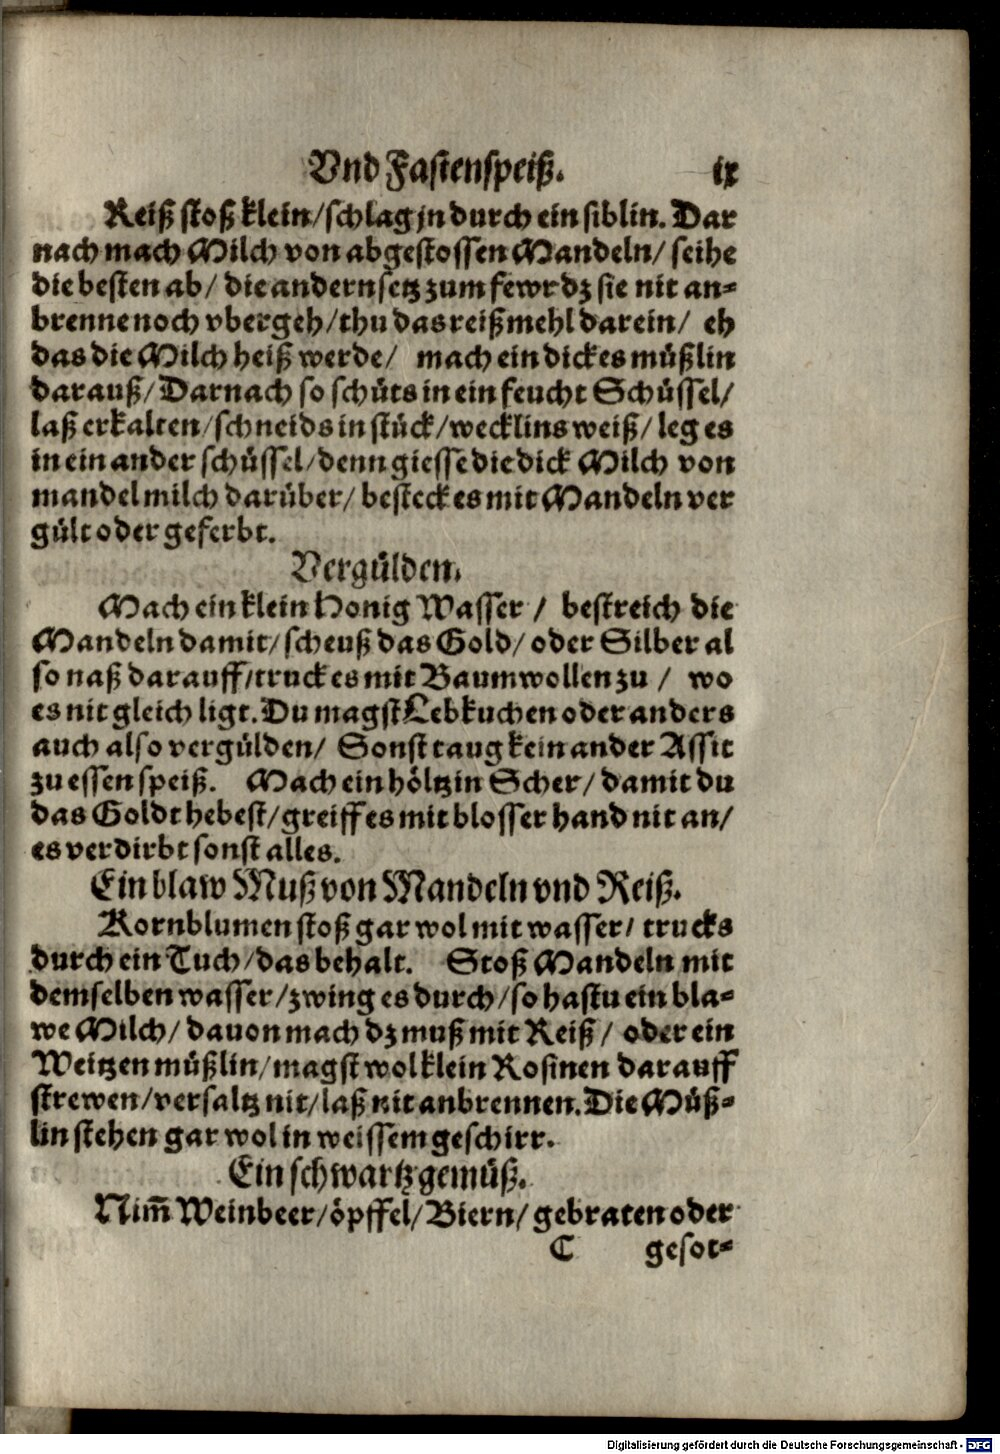 Vnd Fastenspeiß. ix
Reiß stoß klein/schlag jn durch ein siblin. Dar
nach mach Milch von abgestossen Mandeln/ seihe
die besten ab/ die andern setz zum fewr dz sie nit an-
brenne noch vbergeh/thu das reißmehl darein/ eh
das die Milch heiß werde/ mach ein dickes müßlin
darauß/Darnach so schüts in ein feucht Schüssel/
laß erkalten/schneids in stück/wecklins weiß/leg es
in ein ander schüssel/denn giesse die dick Milch von
mandelmilch darüber/ besteck es mit Mandeln ver
gült oder geferbt.
Vergülden.
Mach ein klein Honig Wasser / bestreich die
Mandeln damit/scheuß das Gold/oder Silber al
so naß darauff/truck es mit Baumwollen zu / wo
es nit gleich ligt. Du magst Lebkuchen oder anders
auch also vergülden/ Sonst taug kein ander Assit
zu essen speiß. Mach ein höltzin Scher/damit du
das Goldt hebest/greiff es mit blosser hand nit an/
es verdirbt sonst alles.
Ein blaw Muß von Mandeln vnd Reiß.
Kornblumen stoß gar wol mit wasser/ trucks
durch ein Tuch/das behalt. Stoß Mandeln mit
demselben wasser/zwing es durch/so hastu ein bla-
we Milch/dauon mach dz muß mit Reiß/ oder ein
Weitzen müßlin/magst wol klein Rosinen darauff
strewen/versaltz nit/laß nit anbrennen. Die Müß-
lin stehen gar wol in weissem geschirr.
Ein schwartz gemüß.
Nim̃ Weinbeer/öpffel/Biern/gebraten oder
C gesot-
Digitalisierung gefördert durch die Deutsche Forschungsgemeinschaft - DFG